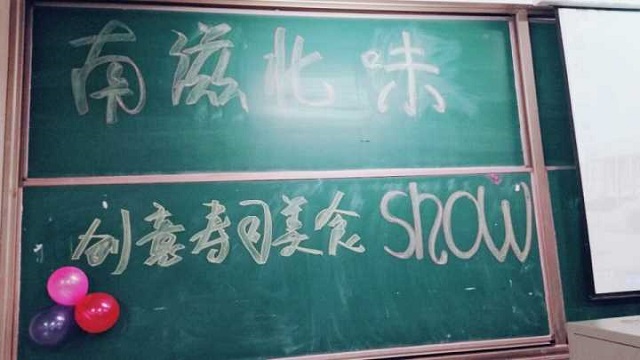 南滋北味
创意寿司美食show